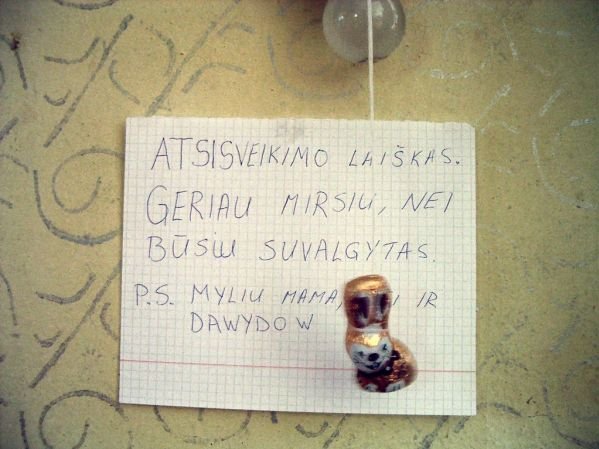 ATSISVEIKIMO LAIŠKAS.
GERIAU MIRSIU, NEI
BŪSIU SUVALGYTAS.
P.S. MYLIU MAMA, IR
DAWYDOW